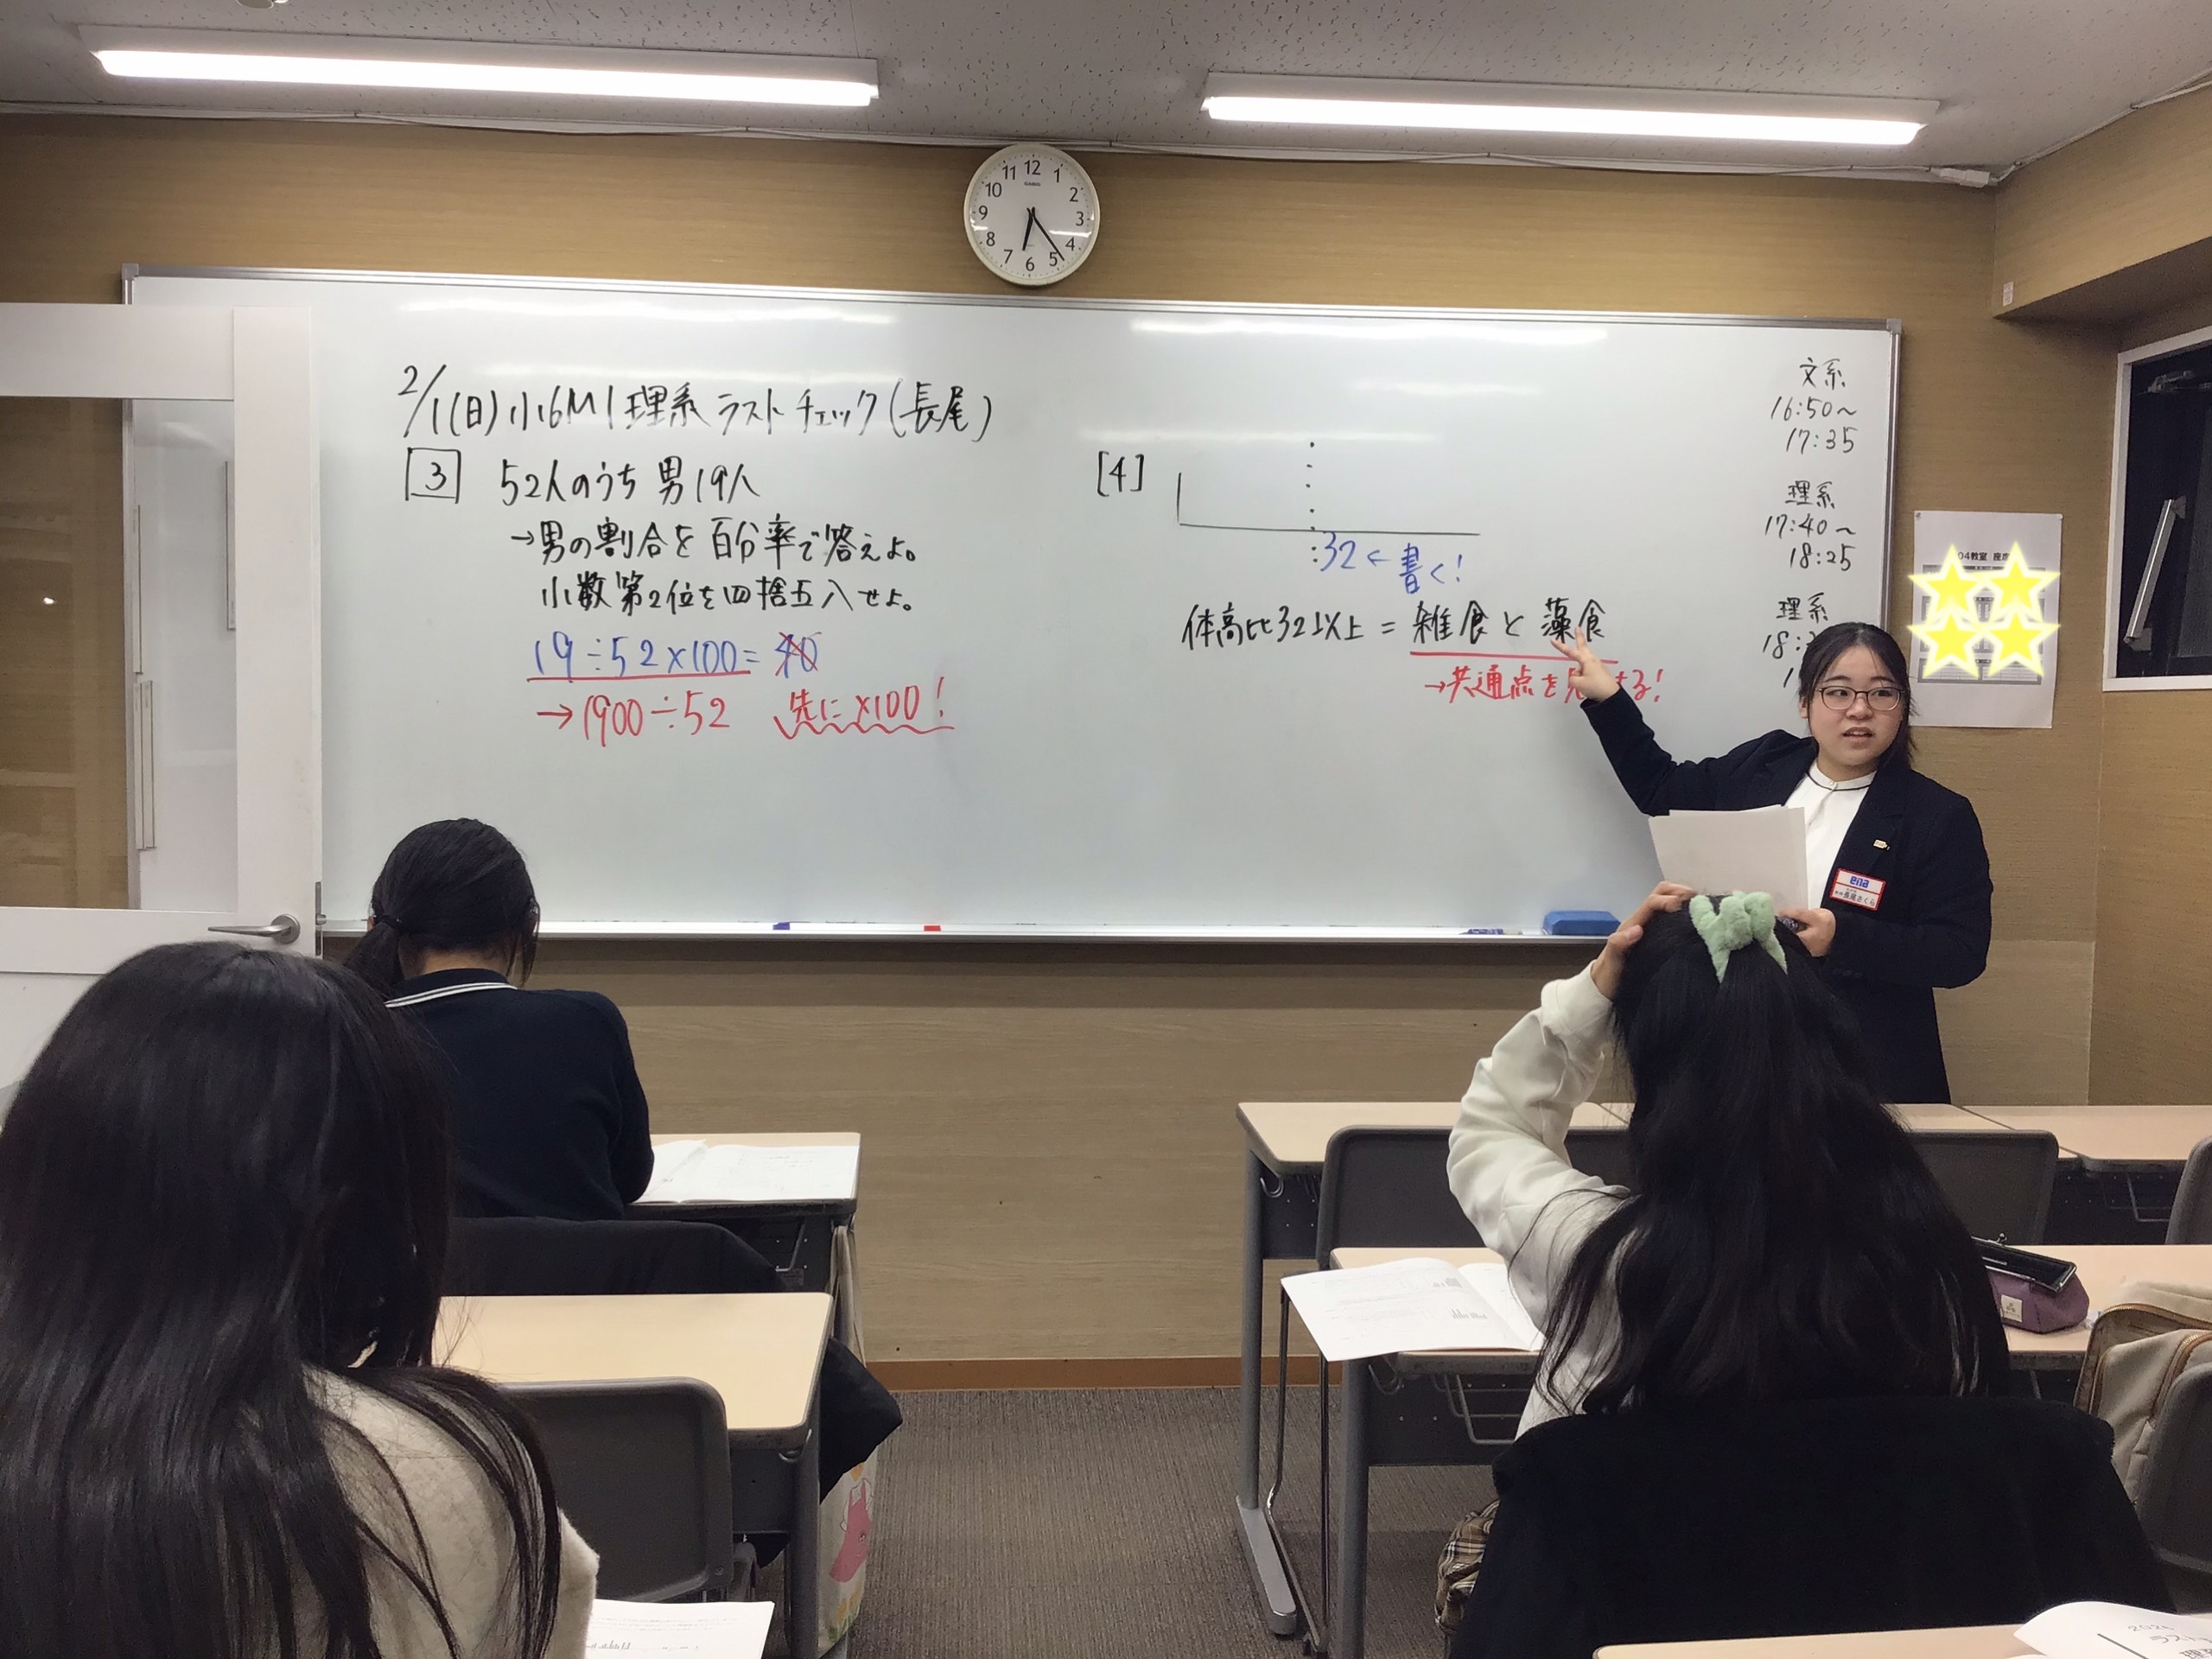 2/1(日)小6M1理系ラストチェック(長尾)
3 52人のうち男19人
→男の割合を百分率で答えよ。
小数第2位を四捨五入せよ。
19÷52×100=40
→1900÷52 先に×100!
[4]
:32←書く!
体高比32以上=雑食と藻食
→共通点を る!
文系
16:50~
17:35
理系
17:40~
18:25
理系
18:
1
12 1 2 3 4 5 6 7 8 9 10 11
CASIO
04教室 座
ena
長尾さくら
2026
ラスト